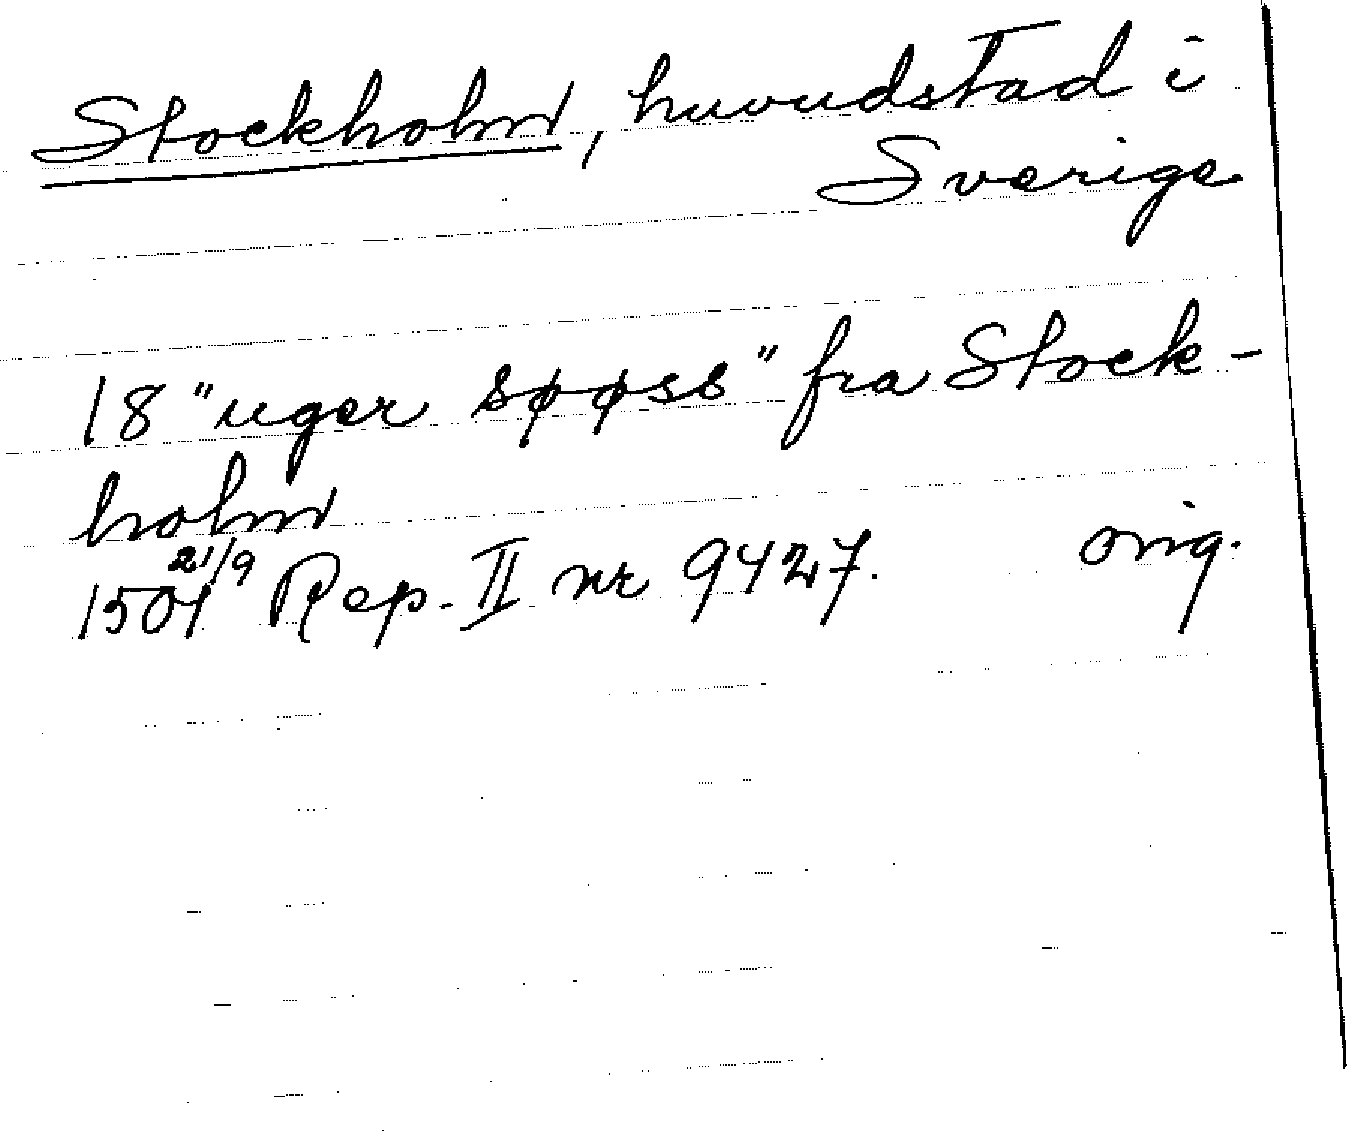 Stockholm, huvudstad i
Sverige
18 "uger søøss" fra Stock-
holm
1501 21/9 Rep. II nr 9427. orig.